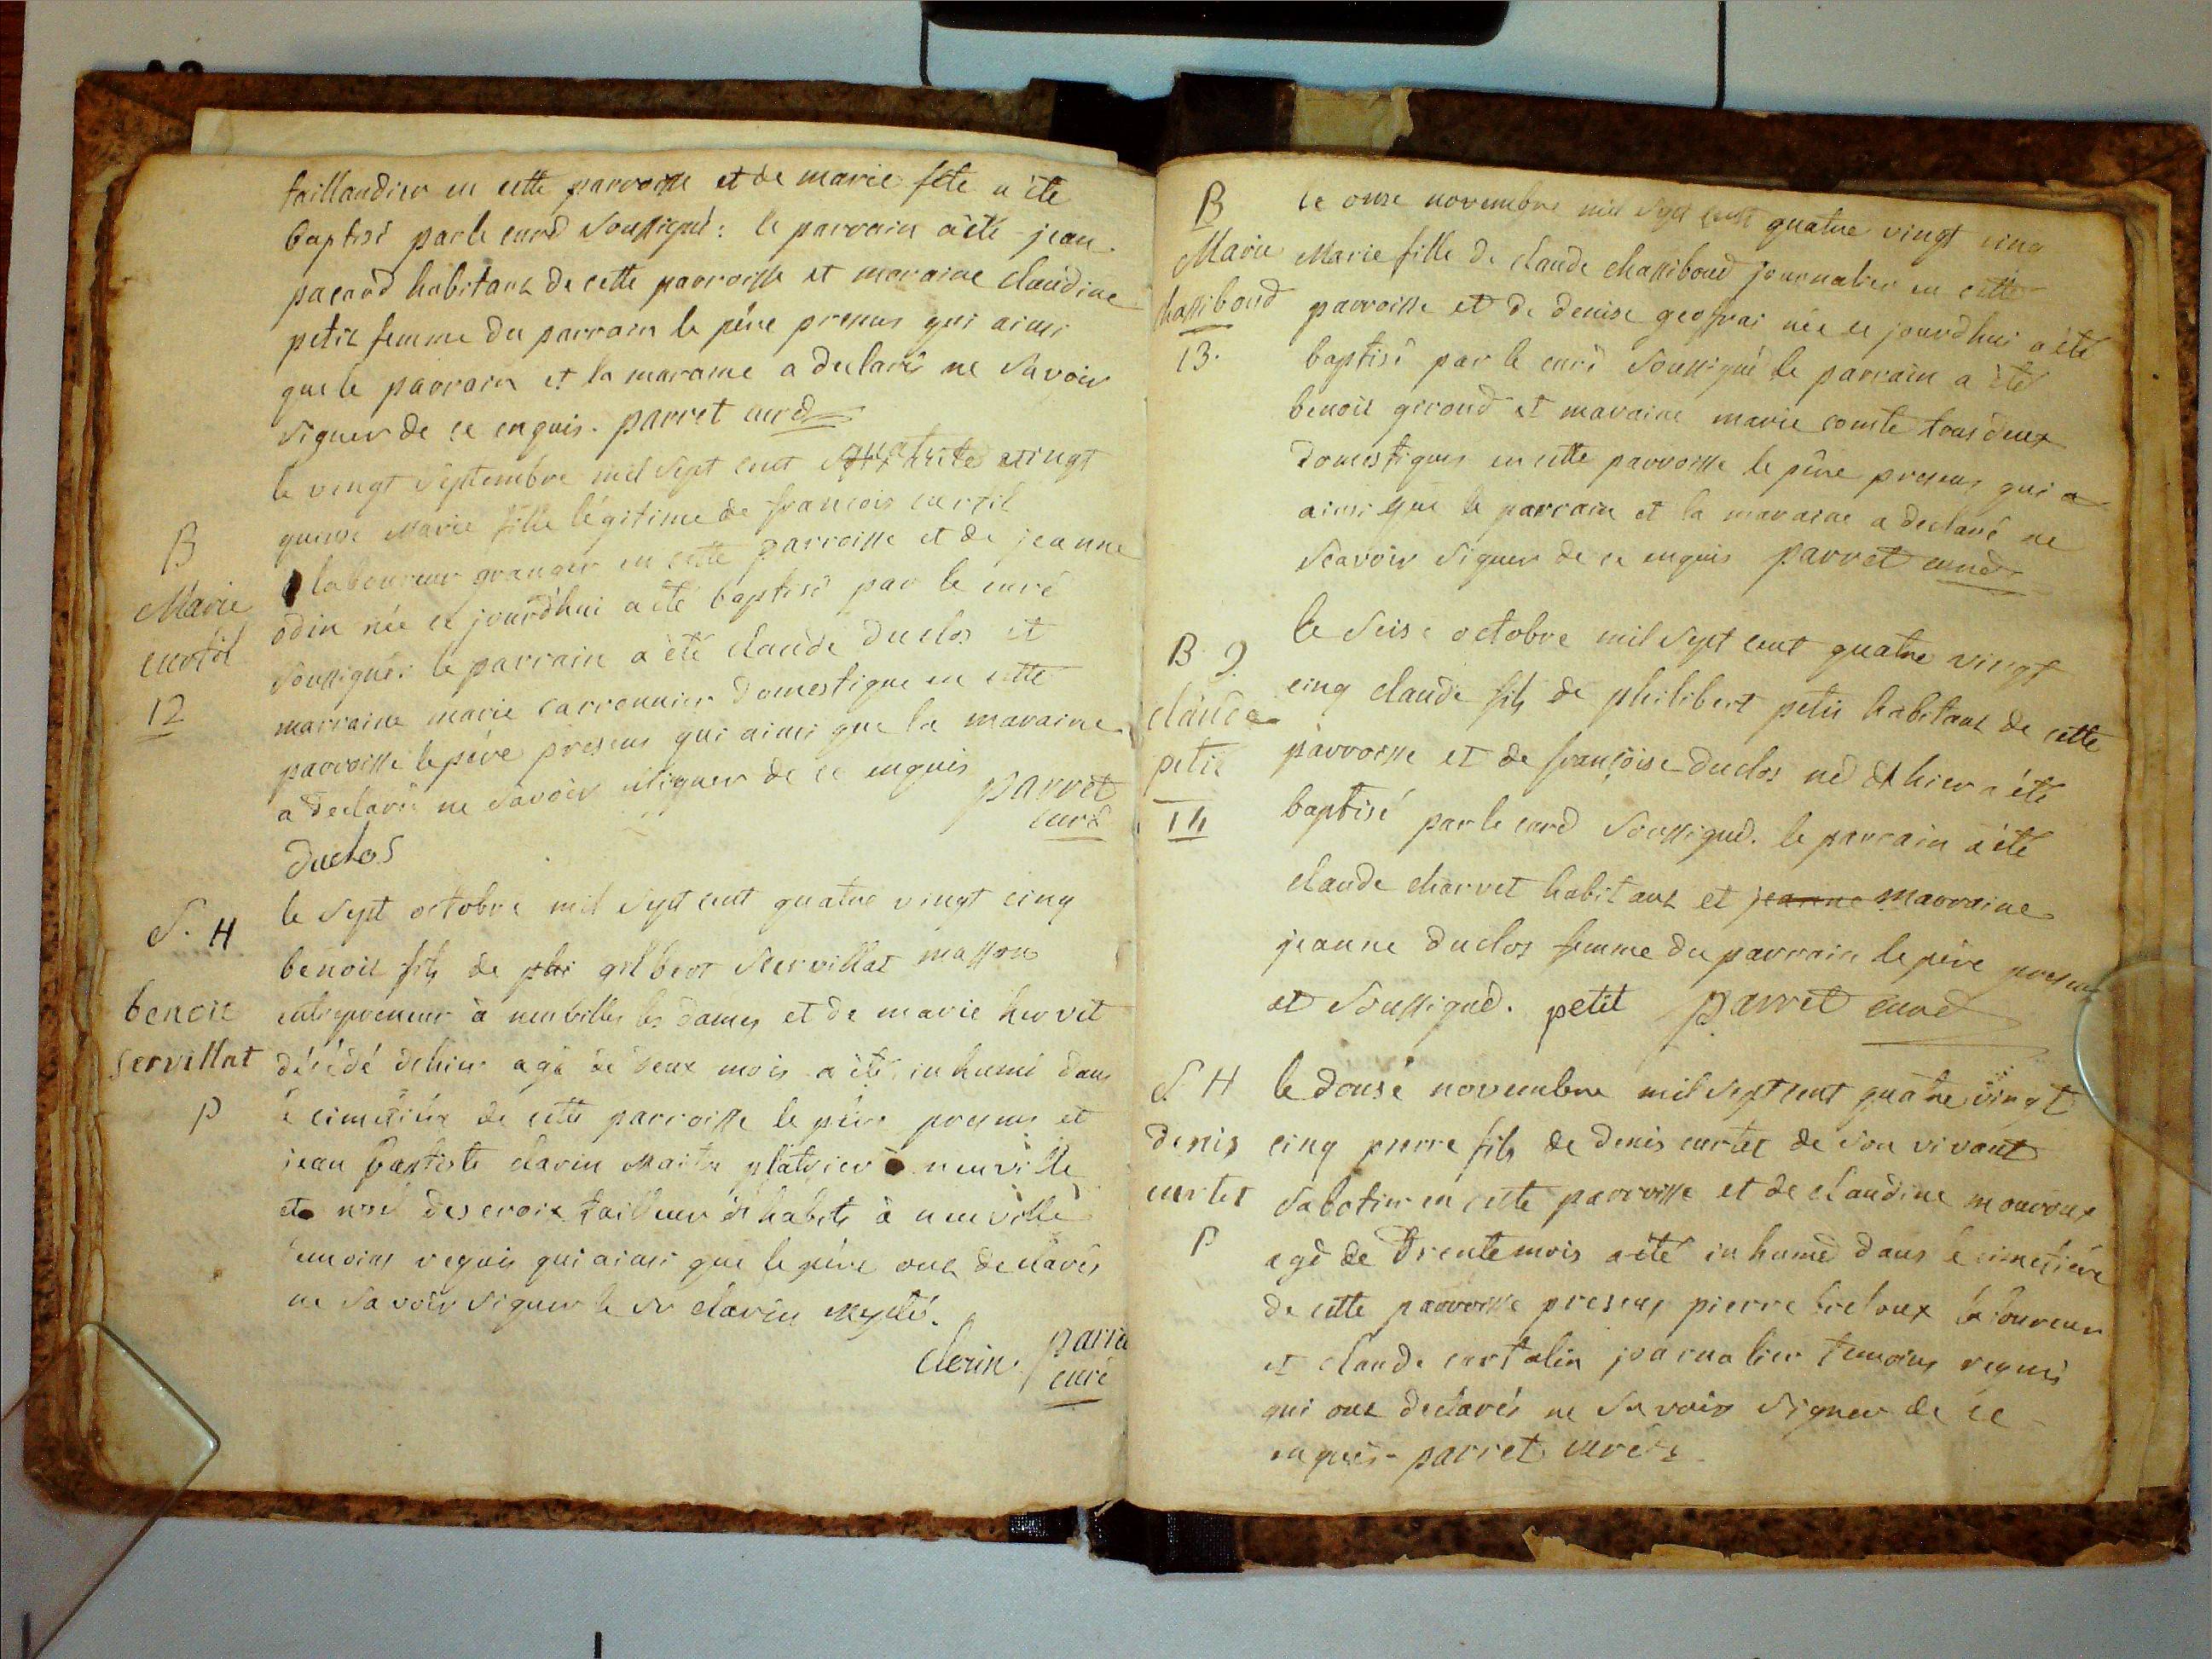 taillandier en cette parroisse et de marie fête a été
baptisé par le curé soussigné: le parrain a été jean
pacard habitant de cette parroisse et maraine claudine
petit femme du parrain le père present qui ainsi
que le parrain et la maraine a declaré ne savoir
signer de ce enquis. parret curé
le vingt septembre mil sept cent quatre vingt
B
quinse Marie fille légitime de francois curtil
Marie
laboureur granger en cette parroisse et de jeanne
curtil
odin née ce jourdhui a été baptisé par le curé
12
soussigné: le parrain a été claude duclos et
marraine marie carronnier domestique en cette
parroisse le père present qui ainsi que la maraine
a declaré ne savoir signer de ce enquis
parret
curé
duclos
S. H
le sept octobre mil sept cent quatre vingt cinq
benoit fils de gilbert Servillat masson
benoit
entrepreneur à neuville les dames et de marie hervet
servillat
décédé dehier agé de deux mois a été inhumé dans
P
le cimetière de cette parroisse le père present et
jean baptiste clarin Maitre platrier à neuville
et noel descroix tailleur dhabits à neuville
temoins requis qui ainsi que le père ont declarés
ne savoir signer le sr clarin excepté.
clerin. parret
curé
B
le onse novembre mil sept cent quatre vingt cinq
Marie
Marie fille de claude chassiboud journalier en cette
chassiboud
parroisse et de denise geoffrai née ce jourdhui a été
13.
baptisé par le curé soussigné le parrain a été
benoit giroud et maraine marie comte tous deux
domestiques en cette parroisse le père present qui a
ainsi que le parrain et la maraine a declaré ne
scavoir signer de ce enquis parret curé
B
le seise octobre mil sept cent quatre vingt
cinq claude fils de philibert petit habitant de cette
claude
petit
parroisse et de françoise duclos né dehier a été
14
baptisé par le curé soussigné. le parrain a été
claude charvet habitant et jeanne marraine
jeanne duclos femme du parrain le père present
et soussigné. petit parret curé
S. H
le douse novembre mil sept cent quatre vingt
denis
cinq pierre fils de denis curtet de son vivant
curtet
sabotier en cette parroisse et de claudine monroux
P
agé de trente mois a été inhumé dans le cimetière
de cette parroisse presens pierre breloux laboureur
et claude curtelin journalier temoins requis
qui ont declarés ne savoir signer de ce
enquis - parret curé